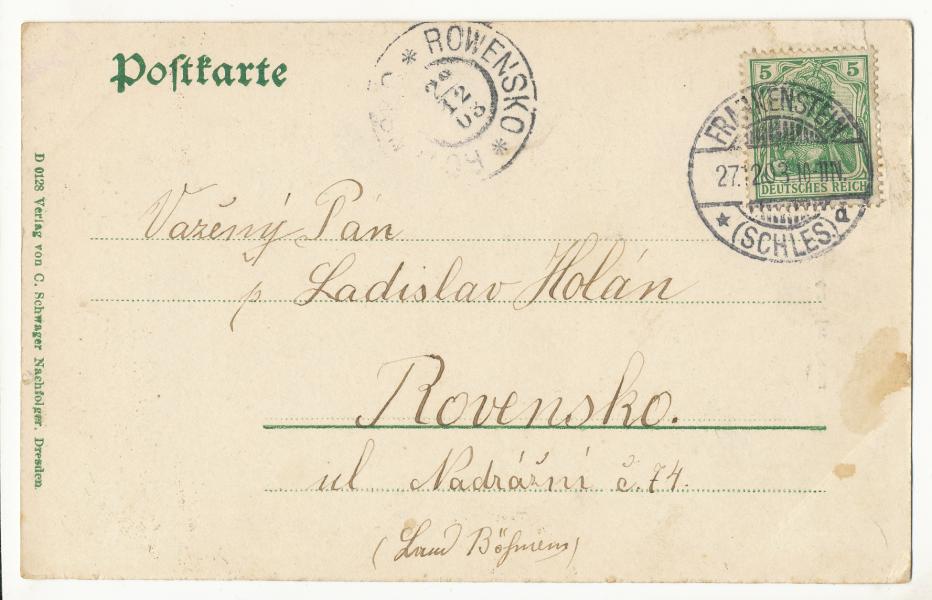 Postkarte
ROWENSKO
28
12
03
5 5
DEUTSCHES REICH
FRANKENSTEIN
27.12.03.10-11N.
* (SCHLES.) d
Važený Pán
p Ladislav Holán
Rovensko.
ul Nadrážní č. 74.
(Land Böhmen)
D 0128 Verlag von C. Schwager Nachfolger, Dresden.